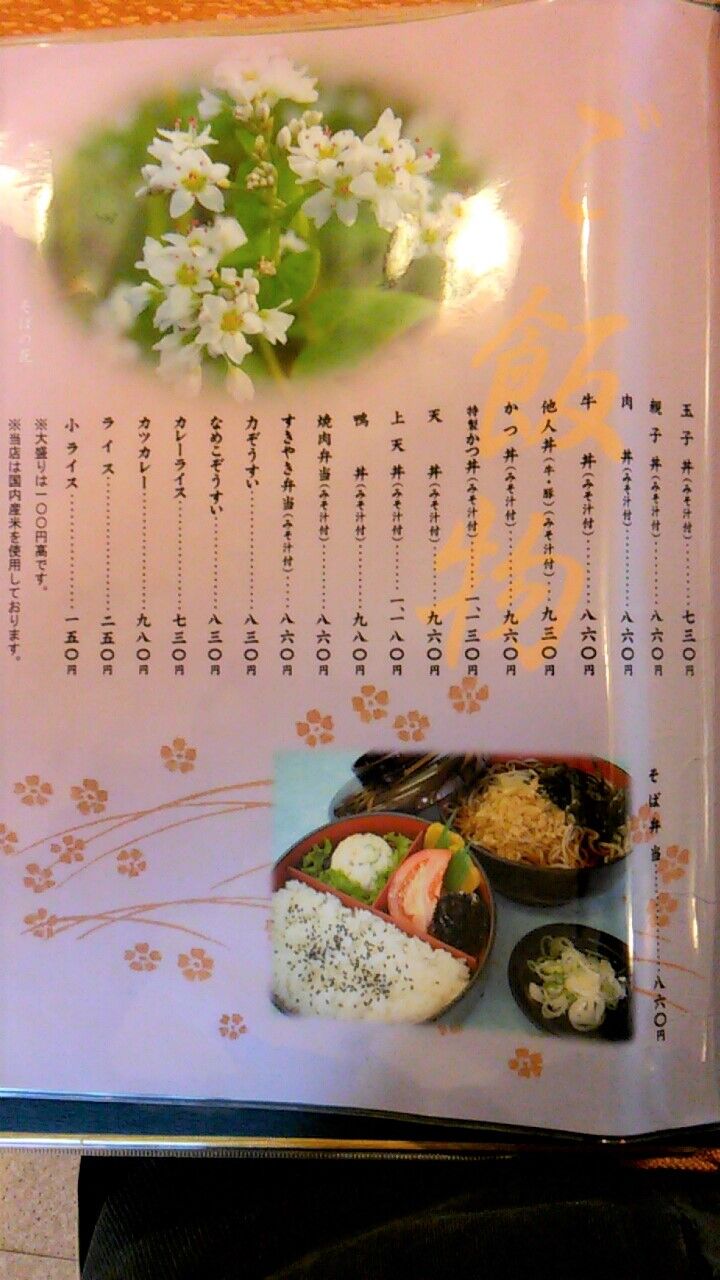 ご飯物
玉子丼(みそ汁付)………七三〇円
親子丼(みそ汁付)………八六〇円
肉丼(みそ汁付)………八六〇円
牛丼(みそ汁付)………八六〇円
他人丼(牛・豚)(みそ汁付)…九三〇円
かつ丼(みそ汁付)………九六〇円
特製かつ丼(みそ汁付)……一、一三〇円
天丼(みそ汁付)………九六〇円
上天丼(みそ汁付)……一、一八〇円
鴨丼(みそ汁付)………九八〇円
焼肉弁当(みそ汁付)………八六〇円
すきやき弁当(みそ汁付)……八六〇円
力ぞうすい………八三〇円
なめこぞうすい………八三〇円
カレーライス………七三〇円
カツカレー………九八〇円
ライス………二五〇円
小ライス………一五〇円
※大盛りは一〇〇円高です。
※当店は国内産米を使用しております。
そばの花
そば弁当………八六〇円